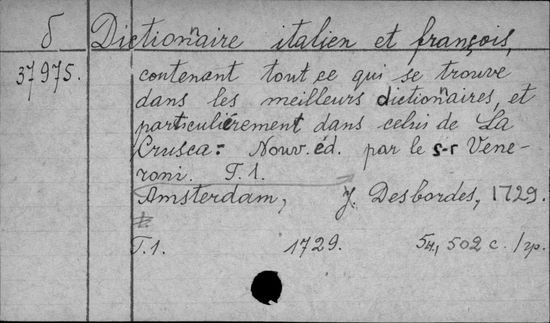 б Dictionnaire italien et françois,
37975. contenant tout ce qui se trouve
dans les meilleurs dictionnaires, et
particuliérement dans celui de La
Crusca: Nouv. éd. par le s-r Vene-
roni. T. 1.
Amsterdam, J. Desbordes, 1729.
T. 1. 1729. 54, 502 c. / гр.